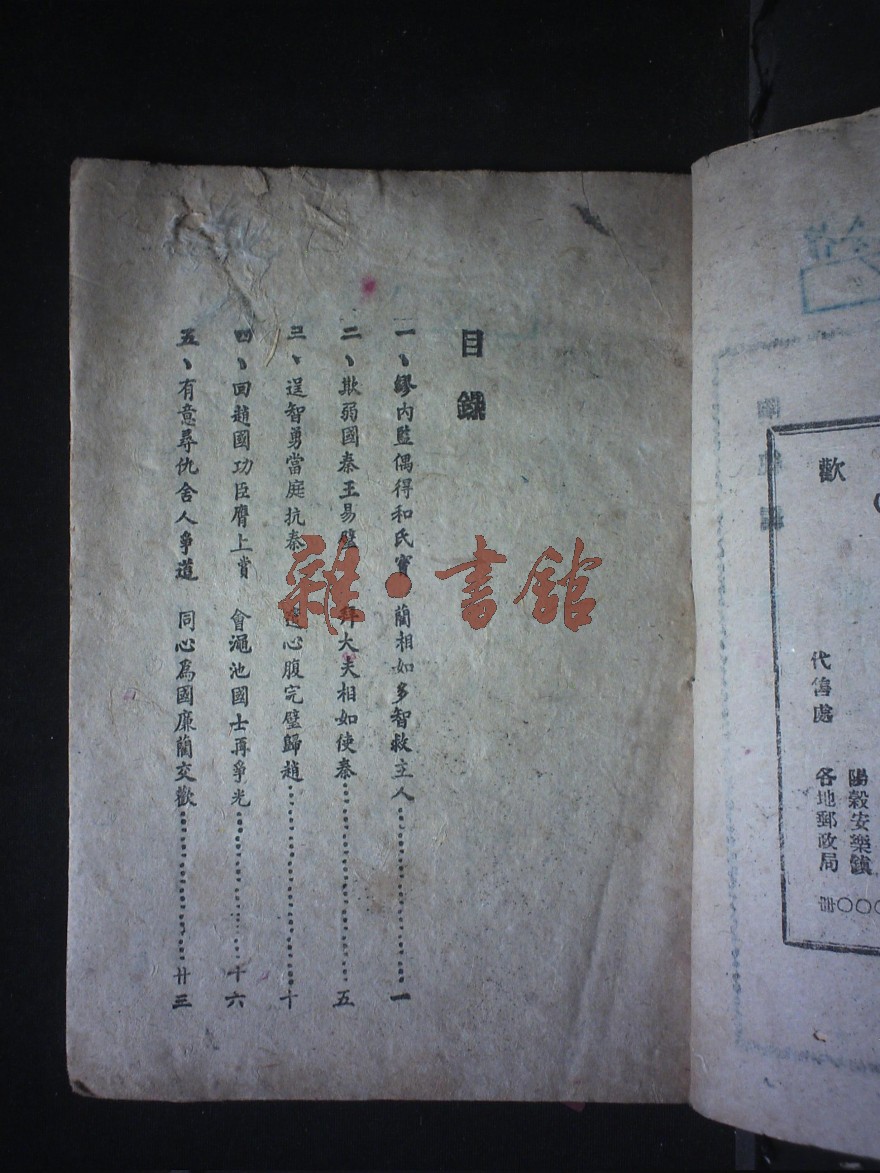 歡
代售處
陽穀安樂鎮
各地郵政局
目錄
一、繆內監偶得和氏寶 藺相如多智救主人 一
二、欺弱國秦王易璧 拜大夫相如使秦 五
三、逞智勇當庭抗秦 心腹完璧歸趙 十
四、回趙國功臣膺上賞 會澠池國士再爭光 十六
五、有意尋仇舍人爭道 同心為國廉藺交歡 廿三
雜·書館